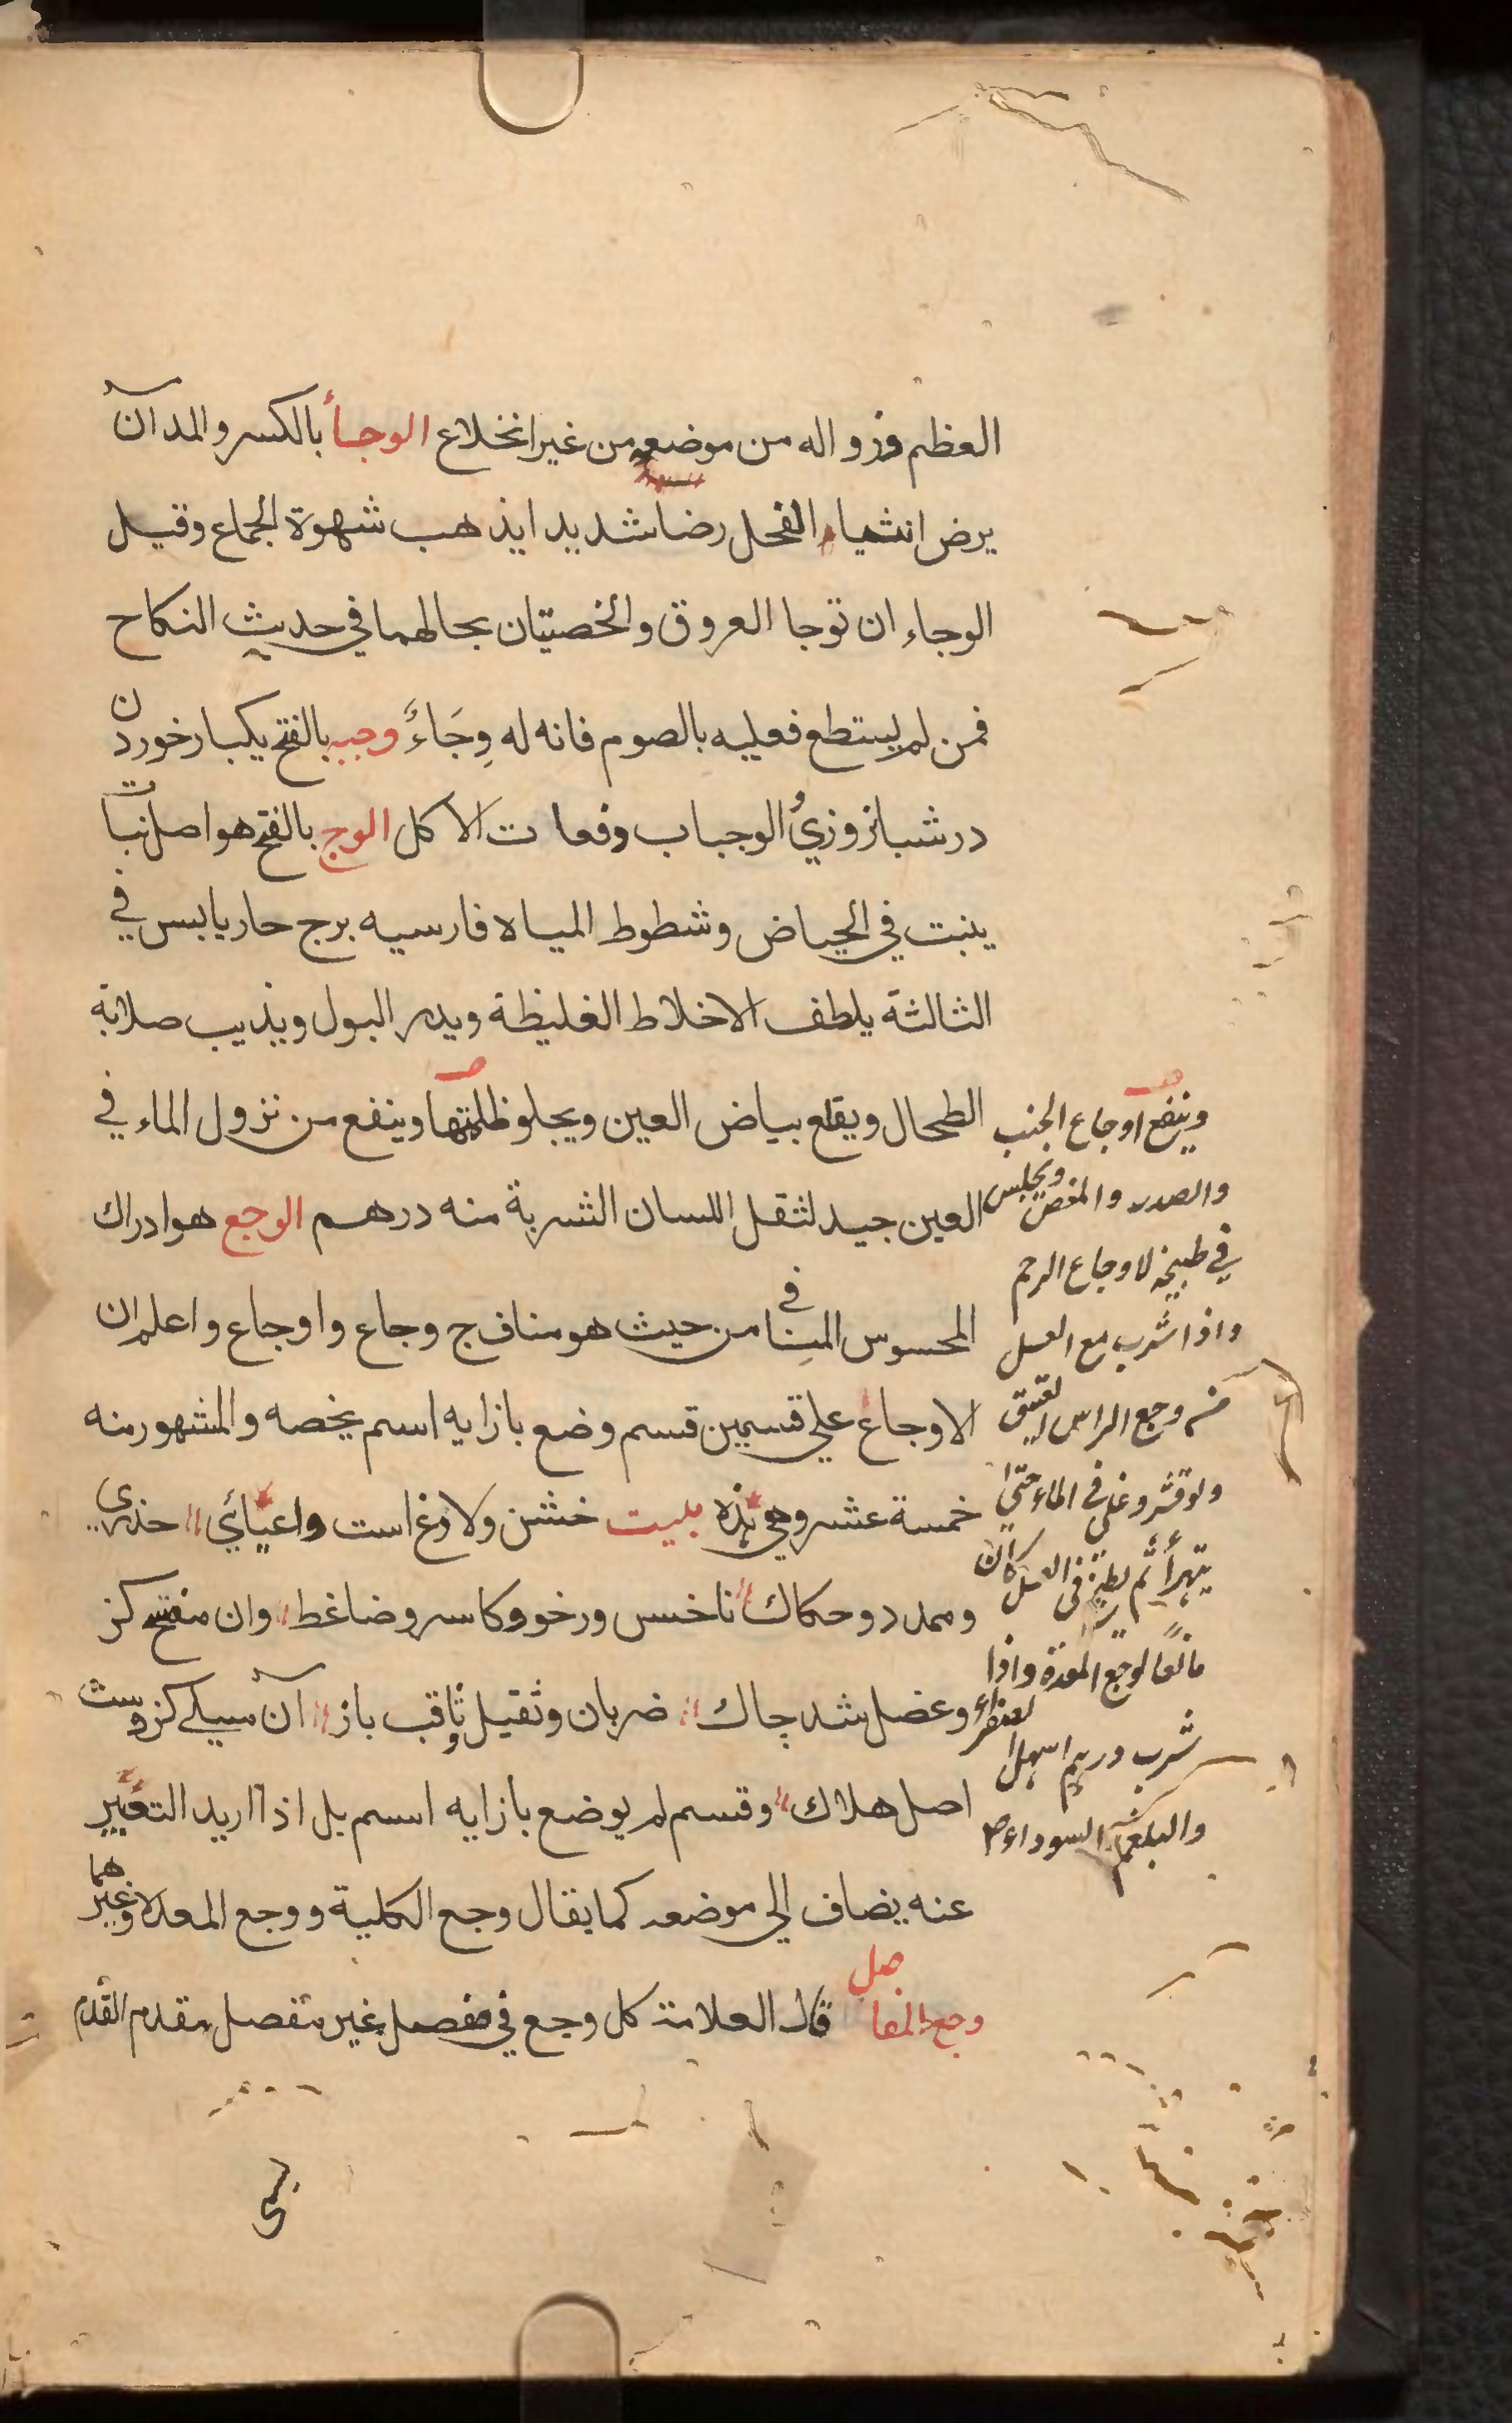 العظم وزواله من موضعه من غير انخلاع الوجأ بالكسر والمد آن
يرض انثياء الفحل رضا شديدا يذهب شهوة الجماع وقيل
الوجاء ان توجا العروق والخصيتان بحالهما في حديث النكاح
فمن لم يستطع فعليه بالصوم فانه له وِجَاءٌ وجبه بالفتح يكبار خوردن
در شبانروزيُ الوجباب دفعات الاكل الوج بالفتح هو اصل نبات
ينبت في الحياض وشطوط المياه فارسيه برج حار يابس في
الثالثة يلطف الاخلاط الغليظة ويدر البول ويذيب صلابة
الطحال ويقلع بياض العين ويجلو ظلمتها وينفع من نزول الماء في
العين جيد لثقل اللسان الشربة منه درهم الوجع هو ادراك
المحسوس المنافي من حيث هو مناف ج وجاع واوجاع واعلم ان
الاوجاع علي قسمين قسم وضع بازايه اسم يخصه والمشهور منه
خمسة عشر وهي نذه بليت خشن ولاذغ است واعيائي خدري
وممدد وحكاك ناخس ورخو وكاسر وضاغط وان مفتح كز
وعضل شد چاك ضربان وثقيل وثاقب باز آن سيلي كزوست
اصل هلاك وقسم لم يوضع بازايه اسم بل اذا اريد التعبير
عنه يضاف الي موضعه كما يقال وجع الكلية ووجع المعدة وغيرهما
وجع المفاصل قال العلامة كل وجع في مفصل غير مفصل مقدم القدم
وينفع اوجاع الجنب
والصدر والمغص ويجلس
في طبيخه لاوجاع الرحم
واذا شرب مع العسل
وجع الراس العتيق
ولو قشر وغلي في الماء حتي
يتهرأ ثم يطبخ في العسل كان
نافعا لوجع المعدة واذا
شرب درهم اسهل الصفراء
والبلغم السوداء